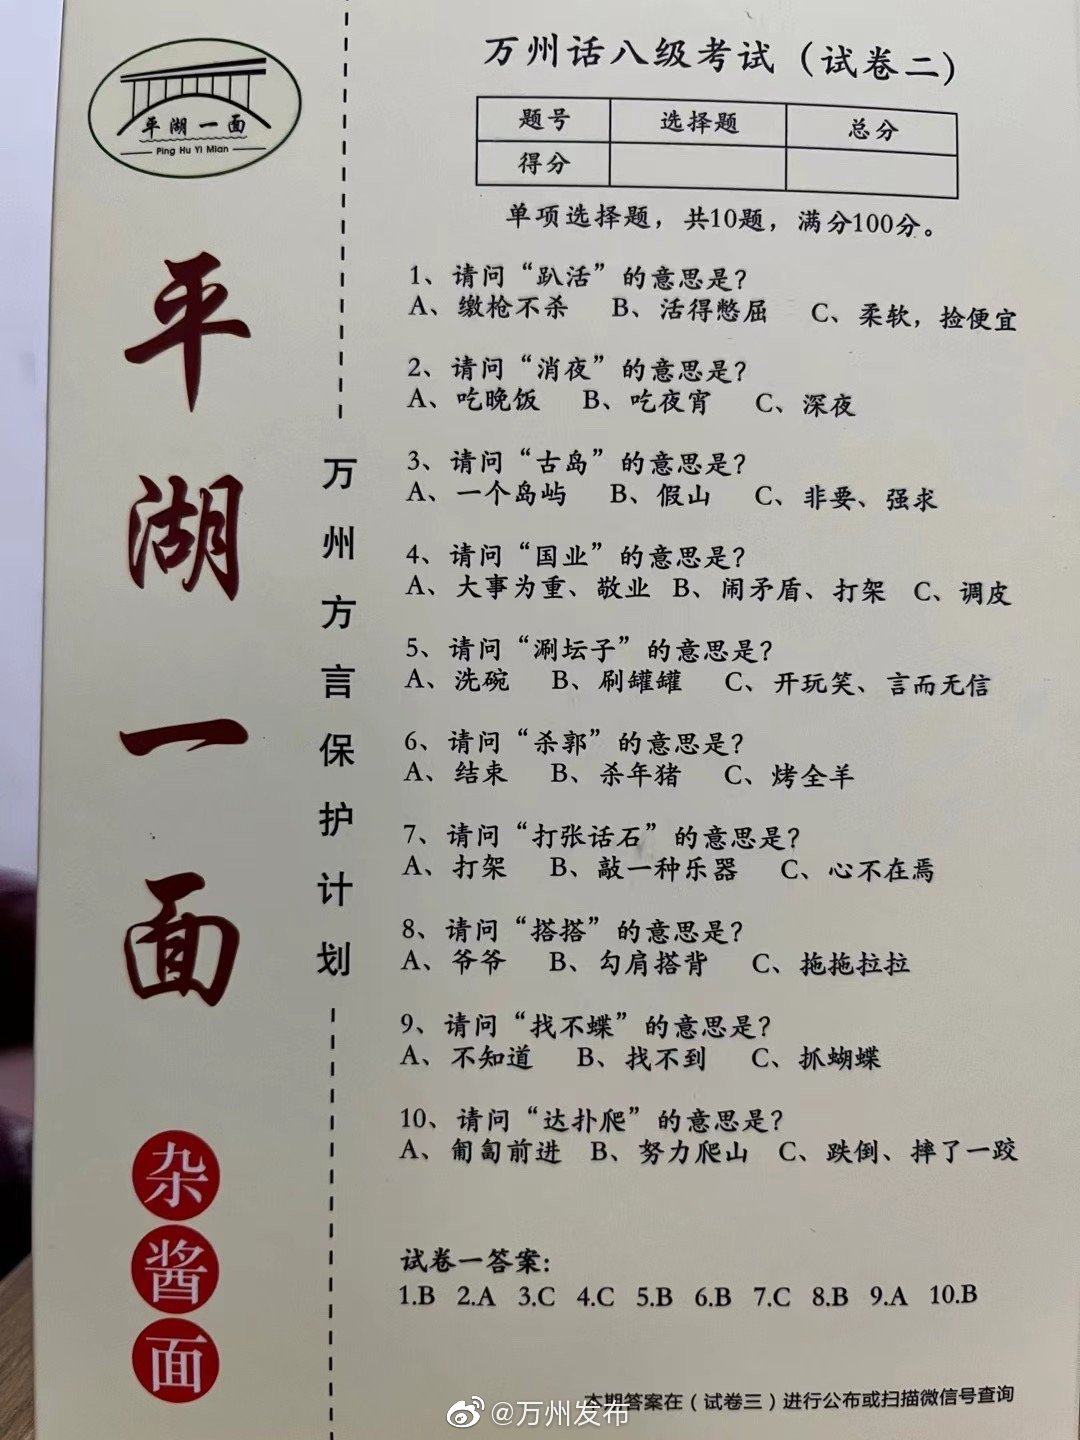 平湖一面
Ping Hu Yi Mian
平湖一面
杂酱面
万州方言保护计划
万州话八级考试（试卷二）
题号 选择题 总分
得分
单项选择题，共10题，满分100分。
1、请问“趴活”的意思是？
A、缴枪不杀 B、活得憋屈 C、柔软，捡便宜
2、请问“消夜”的意思是？
A、吃晚饭 B、吃夜宵 C、深夜
3、请问“古岛”的意思是？
A、一个岛屿 B、假山 C、非要、强求
4、请问“国业”的意思是？
A、大事为重、敬业 B、闹矛盾、打架 C、调皮
5、请问“涮坛子”的意思是？
A、洗碗 B、刷罐罐 C、开玩笑、言而无信
6、请问“杀郭”的意思是？
A、结束 B、杀年猪 C、烤全羊
7、请问“打张话石”的意思是？
A、打架 B、敲一种乐器 C、心不在焉
8、请问“搭搭”的意思是？
A、爷爷 B、勾肩搭背 C、拖拖拉拉
9、请问“找不蝶”的意思是？
A、不知道 B、找不到 C、抓蝴蝶
10、请问“达扑爬”的意思是？
A、匍匐前进 B、努力爬山 C、跌倒、摔了一跤
试卷一答案：
1.B 2.A 3.C 4.C 5.B 6.B 7.C 8.B 9.A 10.B
本期答案在（试卷三）进行公布或扫描微信号查询
@万州发布